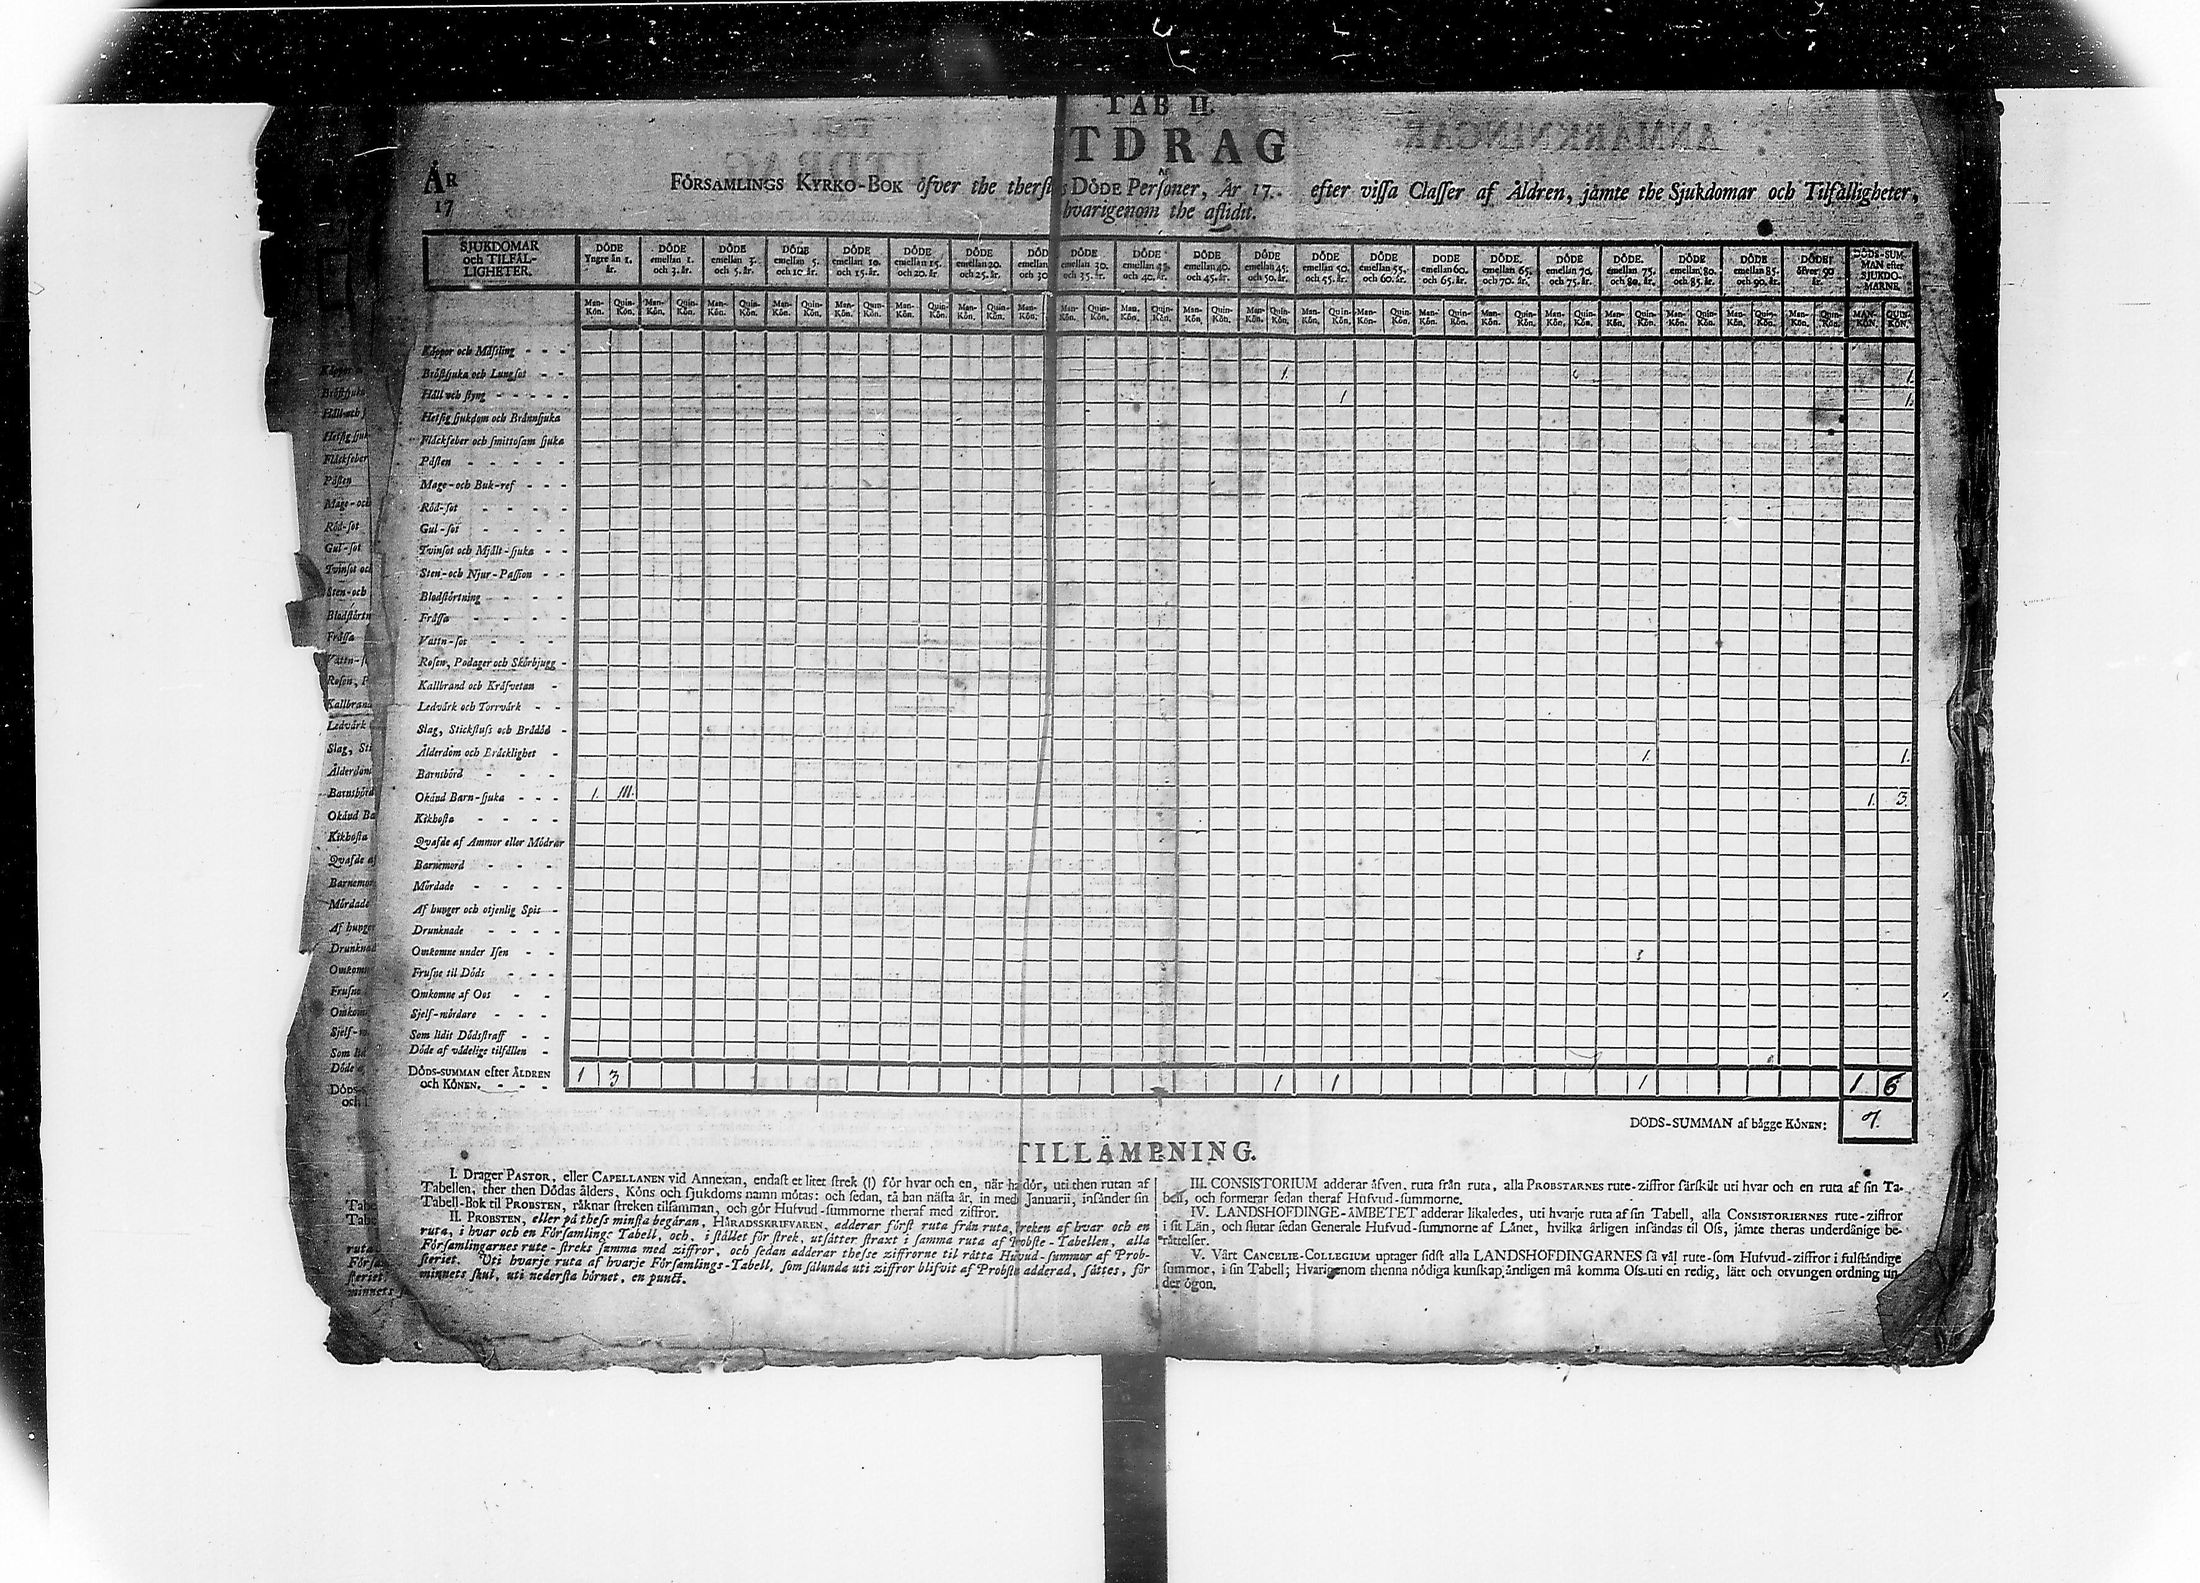 TAB II.
TDRAG
ÅR
17
FÖRSAMLINGS KYRKO-BOK öfver the DÖDE Personer, År 17 efter vissa Classer af Åldren, jämte the Sjukdomar och Tilfälligheter,
hvarigenom the aflidit.
SJUKDOMAR och TILFÄLLIGHETER.
DÖDE Yngre än 1. år.
DÖDE emellan 1. och 3. år.
DÖDE emellan 3. och 5. år.
DÖDE emellan 5. och 10 år.
DÖDE emellan 10. och 15. år.
DÖDE emellan 15. och 20. år.
DÖDE emellan 20. och 25. år.
DÖD emellan och 30
DÖDE emellan 30. och 35. år.
DÖDE emellan och 40. år.
DÖDE emellan 40. och 45. år.
DÖDE emellan 45. och 50. år.
DÖDE emellan 50. och 55. år.
DÖDE emellan 55. och 60. år.
DÖDE emellan 60. och 65. år.
DÖDE. emellan 65. och 70. år.
DÖDE emellan 70. och 75. år.
DÖDE. emellan 75. och 80. år.
DÖDE emellan 80. och 85. år.
DÖDE emellan 85. och 90. år.
DÖDE öfver 90 år.
DÖDS-SUMMAN efter SJUKDOMARNE.
Man-Kön. Quin-Kön. Man-Kön. Quin-Kön. Man-Kön. Quin-Kön. Man-Kön. Quin-Kön. Man-Kön. Quin-Kön. Man-Kön. Quin-Kön. Man-Kön. Quin-Kön. Man-Kön. Man-Kön. Quin-Kön. Man-Kön. Quin-Kön. Man-Kön. Quin-Kön. Man-Kön. Quin-Kön. Man-Kön. Quin-Kön. Man-Kön. Quin-Kön. Man-Kön. Quin-Kön. Man-Kön. Quin-Kön. Man-Kön. Quin-Kön. Man-Kön. Quin-Kön. Man-Kön. Quin-Kön. Man-Kön. Quin-Kön. Man-Kön. Quin-Kön. MAN-KÖN. QUIN-KÖN.
Koppor och Mässling - - -
Bröstsjuka och Lungsot - - 1. 1.
Håll och styng - - - - - 1 1.
Hetsig sjukdom och Brännsjuka
Fläckfeber och smittosam sjuka
Pästen - - - - -
Mage-och Buk-ref - - -
Röd-sot - - - -
Gul-sot - - - -
Tvinsot och Mjält-sjuka - -
Sten-och Njur-Passion - -
Blodstörtning - - - -
Frässa - - - -
Vattn-sot - - - -
Rosen, Podager och Skörbjugg -
Kallbrand och Kräfvetan -
Ledvärk och Torrvärk - -
Slag, Stickfluss och Brådöd -
Ålderdom och Bräcklighet - 1. 1.
Barnsbörd - - - -
Okänd Barn-sjuka - - - 1. III. 1. 3.
Kikhosta - - - -
Qvafde af Ammor eller Mödrar
Barnemord - - - -
Mördade - - - -
Af hunger och otjenlig Spis -
Drunknade - - - -
Omkomne under Isen - -
Frusne til Döds - - -
Omkomne af Oos - -
Sjelf-mördare - - -
Som lidit Dödsstraff - -
Döde af vådelige tilfällen -
DÖDS-SUMMAN efter ÅLDREN
och KÖNEN. - - - 1 3 1 1 1 1 6
DÖDS-SUMMAN af bägge KÖNEN: 7.
TILLÄMPNING.
I. Drager PASTOR, eller CAPELLANEN vid Annexan, endast et litet strek (I) för hvar och en, när dör, uti then rutan af
Tabellen, ther then Dödas ålders, Köns och sjukdoms namn mötas: och sedan, tå han nästa år, in med Januarii, insänder sin
Tabell-Bok til PROBSTEN, räknar streken tilsamman, och gör Hufvud-summorne theraf med ziffror.
II. PROBSTEN, eller på thess minsta begäran, HÄRADSSKRIFVAREN, adderar först ruta från ruta, streken af hvar och en
ruta, i hvar och en Församlings Tabell, och, i stället för strek, utsätter straxt i samma ruta af Probste-Tabellen, alla
Församlingarnes rute-streks summa med ziffror, och sedan adderar thesse ziffrorne til rätta Hufvud-summor af Prob-
steriet. Uti hvarje ruta af hvarje Församlings-Tabell, som sålunda uti ziffror blifvit af Probsten adderad, sättes, för
minnets skul, uti nedersta hörnet, en punct.
III. CONSISTORIUM adderar äfven, ruta från ruta, alla PROBSTARNES rute-ziffror särskilt uti hvar och en ruta af sin Ta-
bell, och formerar sedan theraf Hufvud-summorne.
IV. LANDSHOFDINGE-ÄMBETET adderar likaledes, uti hvarje ruta af sin Tabell, alla CONSISTORIERNES rute-ziffror
i sit Län, och slutar sedan Generale Hufvud-summorne af Länet, hvilka årligen insändas til Oss, jämte theras underdånige be-
rättelser.
V. Vårt CANCELIE-COLLEGIUM uptager sidst alla LANDSHOFDINGARNES så väl rute-som Hufvud-ziffror i fulständige
summor, i sin Tabell; Hvarigenom thenna nödiga kunskap äntligen må komma Oss uti en redig, lätt och otvungen ordning un-
der ögon.